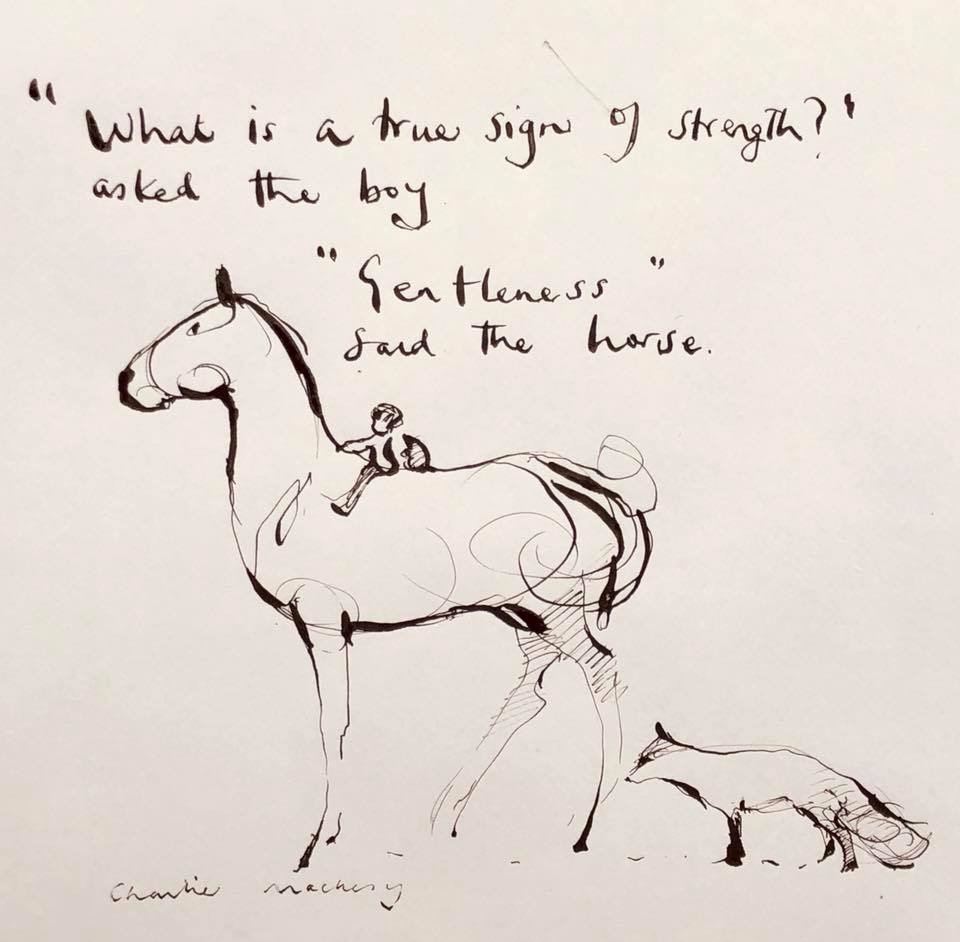 "What is a true sign of strength?'
asked the boy
"Gentleness"
said the horse.
Charlie Mackesy